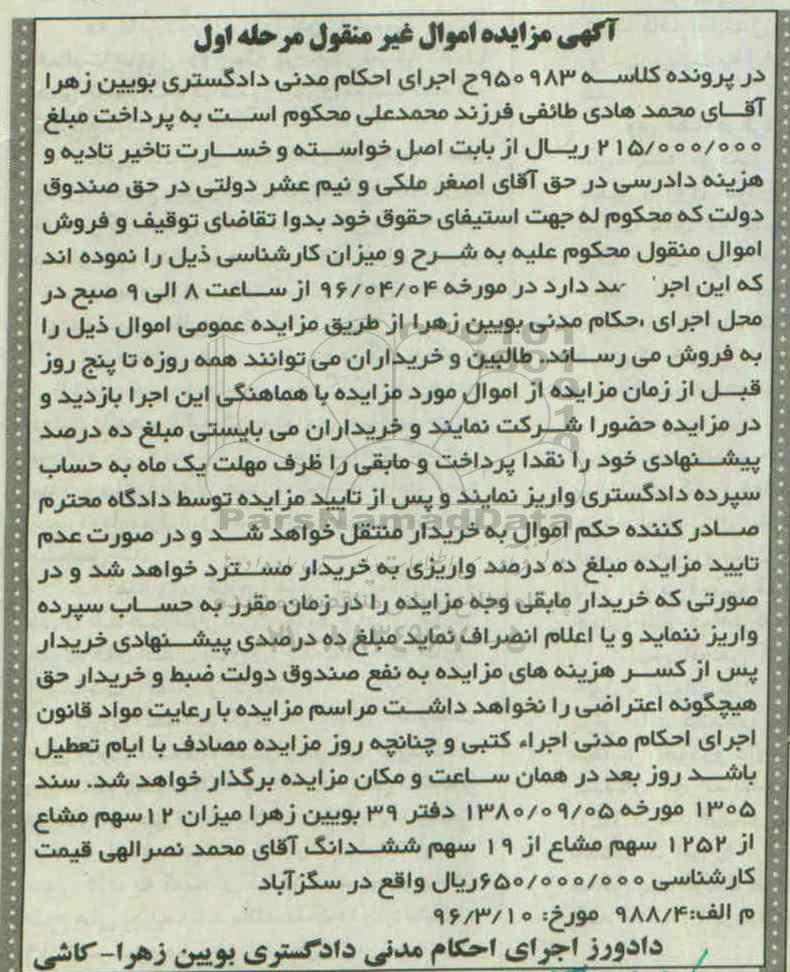 آگهی مزایده اموال غیر منقول مرحله اول
در پرونده کلاسه ۹۵۰۹۸۳ح اجرای احکام مدنی دادگستری بویین زهرا
آقای محمد هادی طائفی فرزند محمدعلی محکوم است به پرداخت مبلغ
۲۱۵/۰۰۰/۰۰۰ ریال از بابت اصل خواسته و خسارت تاخیر تادیه و
هزینه دادرسی در حق آقای اصغر ملکی و نیم عشر دولتی در حق صندوق
دولت که محکوم له جهت استیفای حقوق خود بدوا تقاضای توقیف و فروش
اموال منقول محکوم علیه به شرح و میزان کارشناسی ذیل را نموده اند
که این اجر دارد در مورخه ۹۶/۰۴/۰۴ از ساعت ۸ الی ۹ صبح در
محل اجرای احکام مدنی بویین زهرا از طریق مزایده عمومی اموال ذیل را
به فروش می رساند. طالبین و خریداران می توانند همه روزه تا پنج روز
قبل از زمان مزایده از اموال مورد مزایده با هماهنگی این اجرا بازدید و
در مزایده حضورا شرکت نمایند و خریداران می بایستی مبلغ ده درصد
پیشنهادی خود را نقدا پرداخت و مابقی را ظرف مهلت یک ماه به حساب
سپرده دادگستری واریز نمایند و پس از تایید مزایده توسط دادگاه محترم
صادر کننده حکم اموال به خریدار منتقل خواهد شد و در صورت عدم
تایید مزایده مبلغ ده درصد واریزی به خریدار مسترد خواهد شد و در
صورتی که خریدار مابقی وجه مزایده را در زمان مقرر به حساب سپرده
واریز ننماید و یا اعلام انصراف نماید مبلغ ده درصدی پیشنهادی خریدار
پس از کسر هزینه های مزایده به نفع صندوق دولت ضبط و خریدار حق
هیچگونه اعتراضی را نخواهد داشت مراسم مزایده با رعایت مواد قانون
اجرای احکام مدنی اجراء کتبی و چنانچه روز مزایده مصادف با ایام تعطیل
باشد روز بعد در همان ساعت و مکان مزایده برگذار خواهد شد. سند
۱۳۰۵ مورخه ۱۳۸۰/۰۹/۰۵ دفتر ۳۹ بویین زهرا میزان ۱۲سهم مشاع
از ۱۲۵۲ سهم مشاع از ۱۹ سهم ششدانگ آقای محمد نصرالهی قیمت
کارشناسی ۶۵۰/۰۰۰/۰۰۰ریال واقع در سگزآباد
م الف:۹۸۸/۴ مورخ: ۹۶/۳/۱۰
دادورز اجرای احکام مدنی دادگستری بویین زهرا- کاشی
ParsNamadData